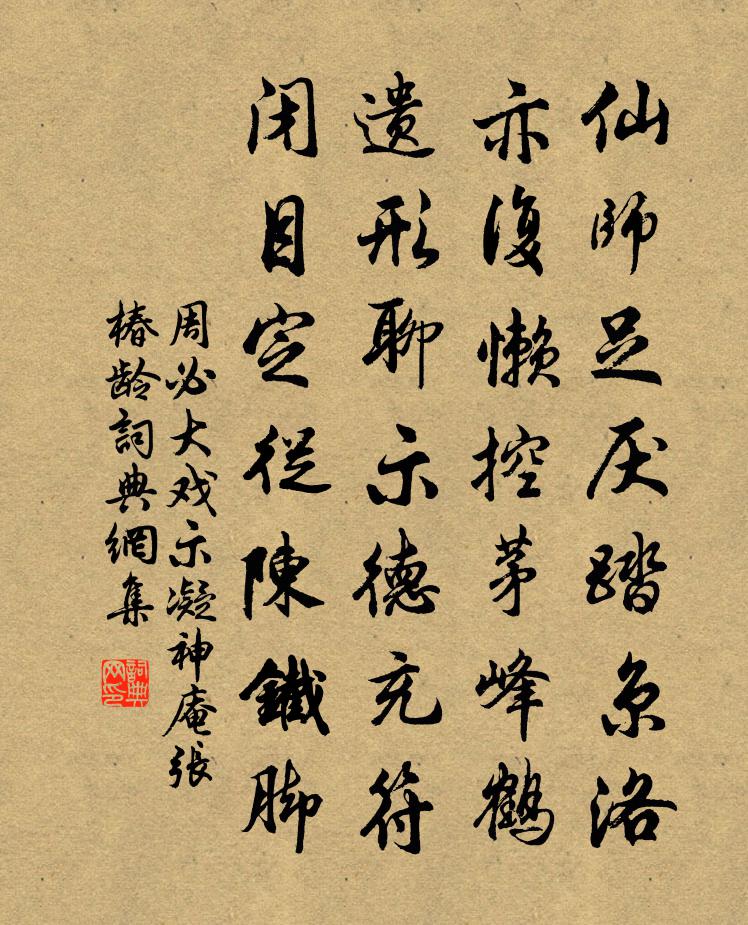 仙師足厌踏京洛
亦復懶控茅峰鶴
遗形聊示德充符
闭目定從陳鐵脚
周必大戏示凝神庵張
椿龄詞典網集
詞典网印